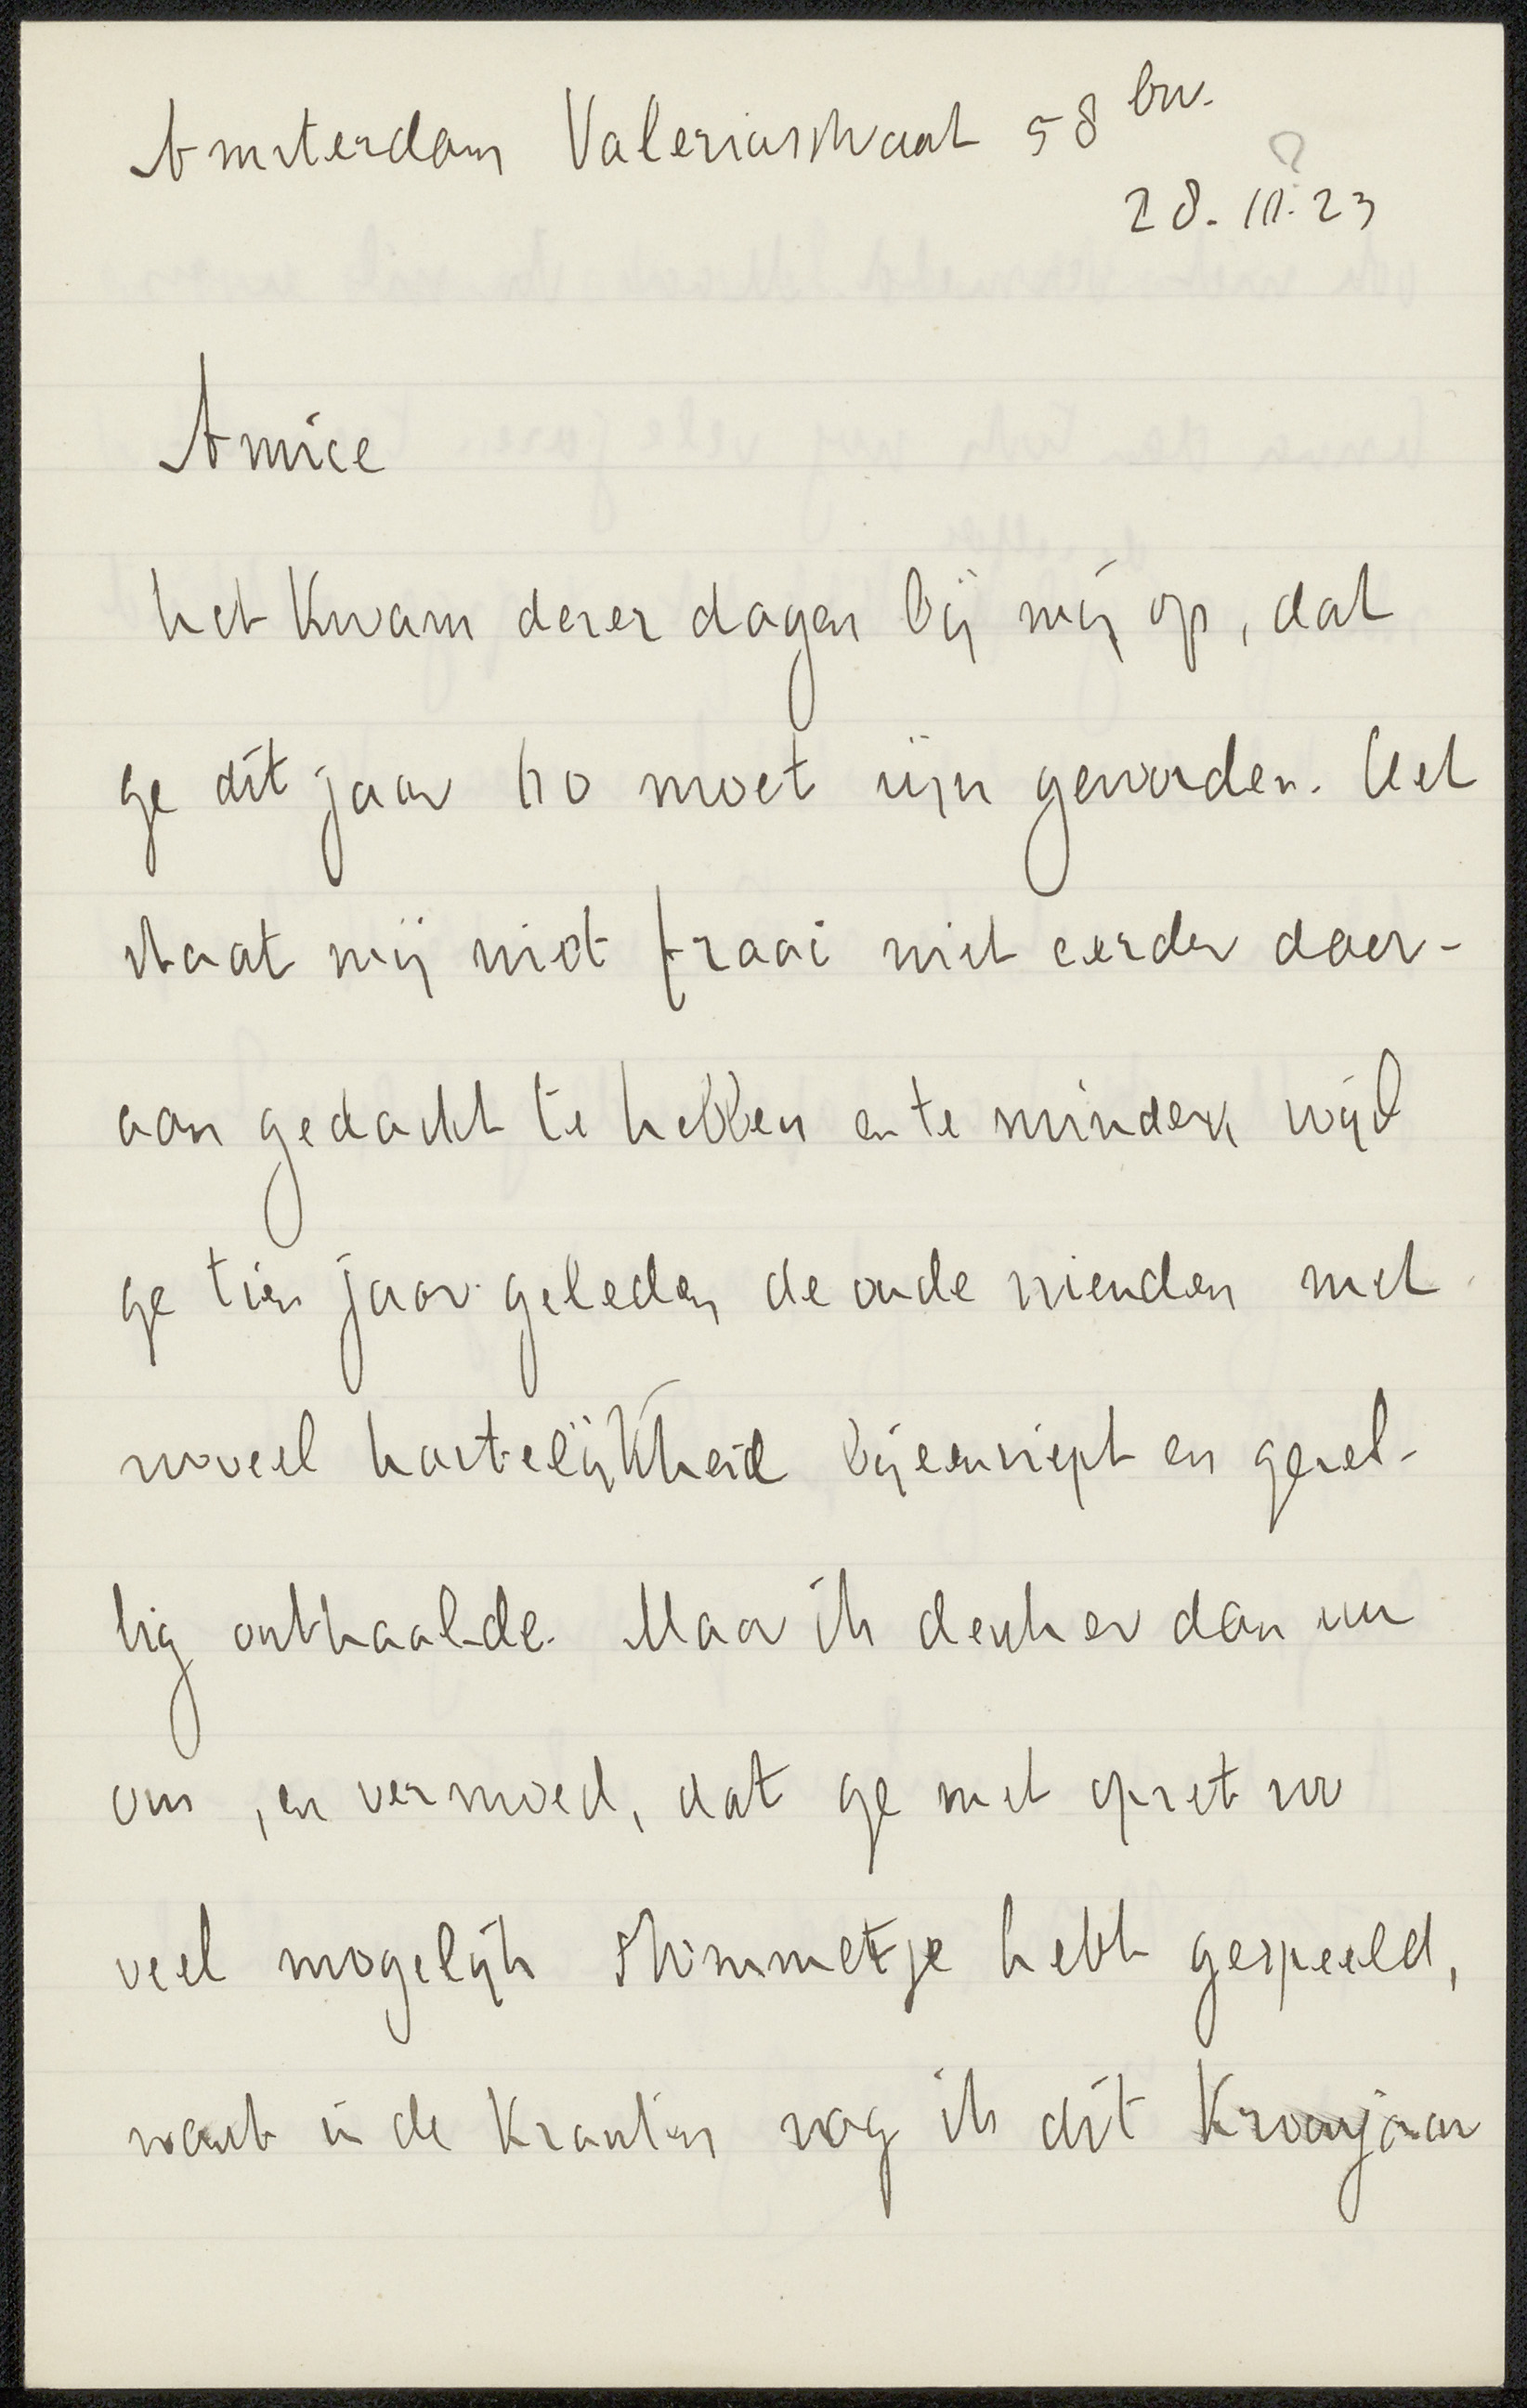 Amsterdam Valeriusstraat 58 bv.
?
28. 11. 23
Amice
het kwam dezer dagen bij mij op, dat
ge dit jaar 60 moet zijn geworden. Het
staat mij niet fraai niet eerder daar-
aan gedacht te hebben en te minder, wijl
ge tien jaar geleden de oude vrienden met
zooveel hartelijkheid bijeenriept en gezel-
lig onthaalde. Maar ik denk er dan nu
om, en vermoed, dat ge met opzet zoo
veel mogelijk stommetje hebt gespeeld,
want in de kranten zag ik dit kroonjaar